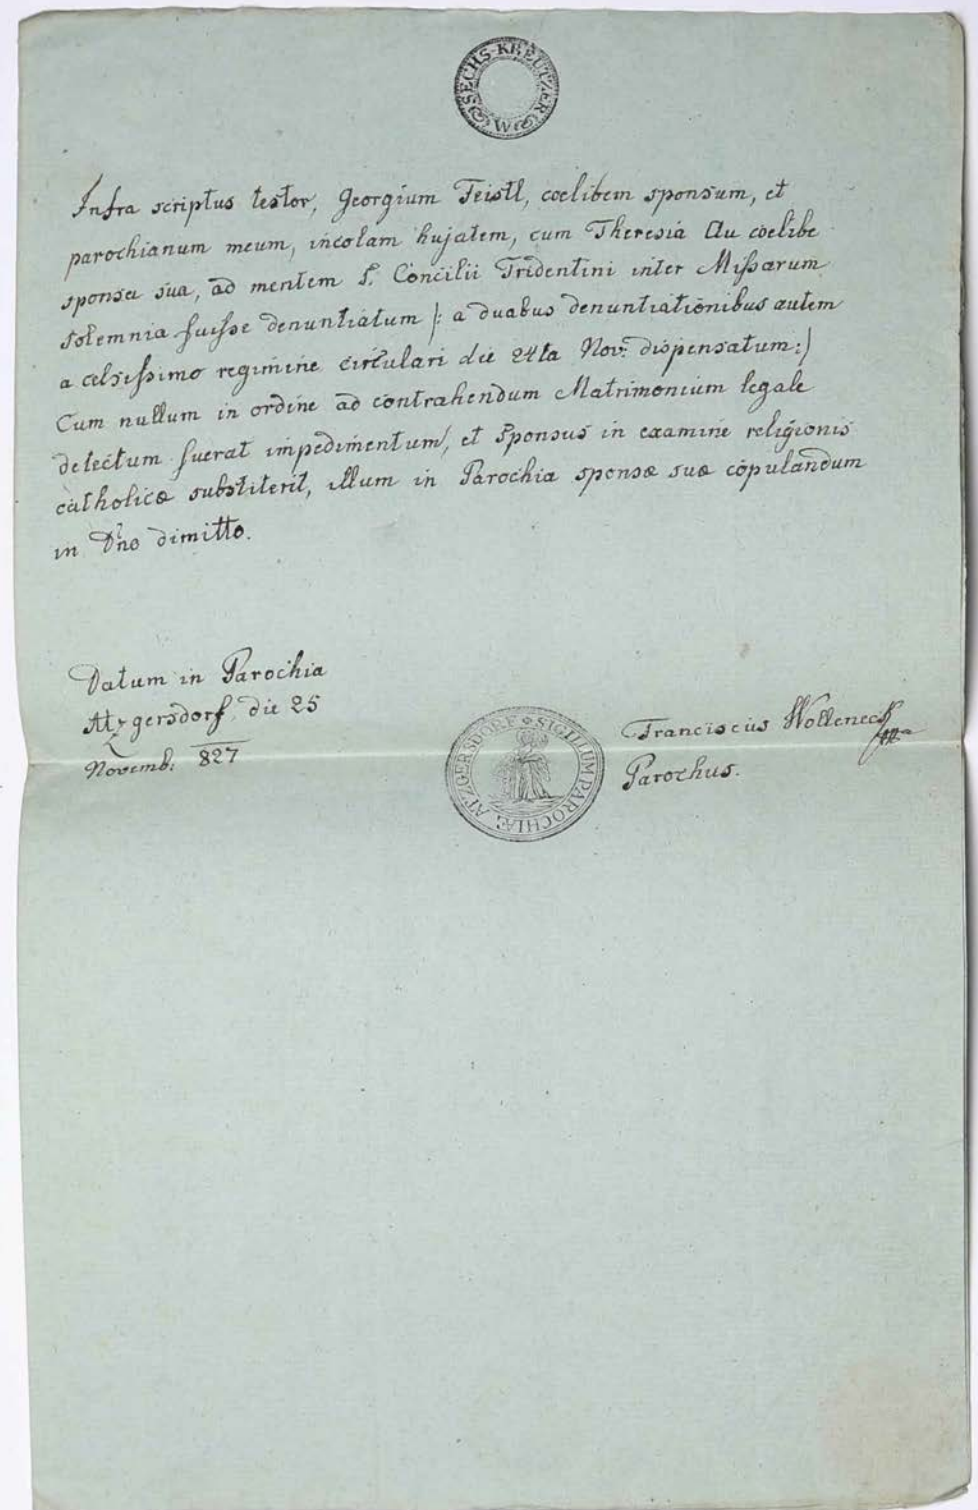 SECHS-KREUTZER W
Infra scriptus testor, Georgium Feistl, coelibem sponsum, et
parochianum meum, incolam hujatem, cum Theresia Au coelibe
sponsa sua, ad mentem S. Concilii Tridentini inter Missarum
solemnia fuisse denuntiatum |: a duabus denuntiationibus autem
a celsissimo regimine circulari die 24ta Nov: dispensatum:|
Cum nullum in ordine ad contrahendum Matrimonium legale
detectum fuerat impedimentum, et Sponsus in examine religionis
catholicæ substiterit, illum in Parochia sponsæ suæ copulandum
in Dno dimitto.
Datum in Parochia
Atzgersdorf die 25
Novemb: 827
SIGILLUM PAROCHIÆ ATZGERSDORF
Franciscus Wolleneck
Parochus.